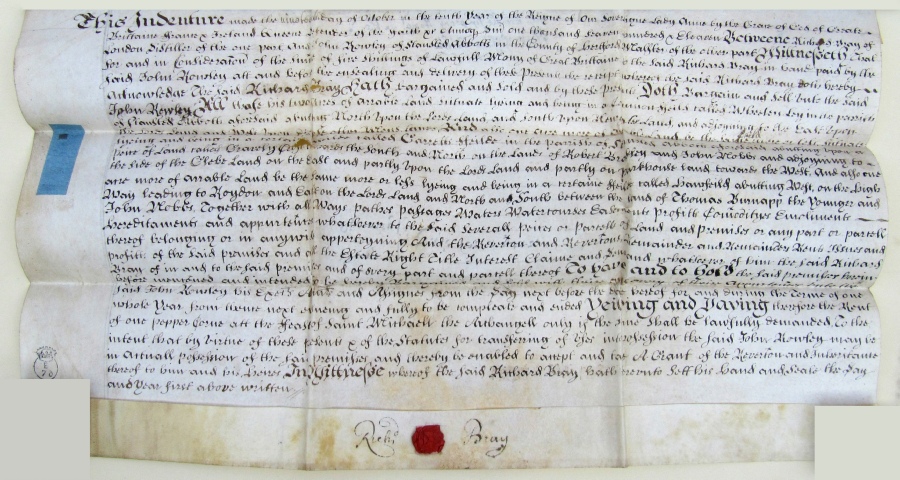 This Indenture made the day of October in the tenth Year of the Reigne of Our Soveraigne Lady Anne by the Grace of God of Great
Brittaine France & Ireland Queene Defender of the Faith &c Annoqz Dni One thousand Seaven hundred & Eleaven Betweene Richard Bray of
London Distiller of the one part And John Rowley of Stansted Abbotts in the County of Hertford Maltster of the other part Witnesseth That
for and in Consideration of the sum of five Shillings of Lawfull Mony of Great Brittaine to the said Richard Bray in hand paid by the
said John Rowley att and before the ensealing and delivery of these Presents the receipt whereof the said Richard Bray doth hereby
Acknowledge The said Richard Bray Hath Bargained and Sold and by these presents Doth Bargaine and Sell unto the said
John Rowley All those his two acres of Arrable Land situate lying and being in a Common called in the parish
of Stansted Abbotts aforesaid abutting North upon the Lords Land and South upon Land, and adjoyning to the East upon
the Lords Land And also one
lying and being in called Field in the parish of
peice of Land called the South and North on the Lands of Robert and John Nobbs and adjoyning to
the side of the Glebe Land on the East and partly upon the Lord Land and partly on Land towards the West. And also one
acre more of Arrable Land be the same more or less lying and being in a certaine field called abutting West, on the High
Way leading to Roydon and East on the Lords Land and North and South between the land of Thomas the Younger and
John Nobbs. Together with all Ways pathes passages Waters Watercourses Easements Profitts Comodities Emoluments
hereditaments and appurtenances whatsoever to the said Severall peices or Parcells of Land and Premises or any part or parcell
thereof belonging or in anywise appertayning And the Revercon and Revercons Remainder and Remainders Rents Issues and
profitts of the said premises and all the Estate Right Title Interest Claime and Demand whatsoever of him the said Richard
Bray of in and to the said premises and of every part and parcell thereof To have and to hold the said premises herein
before mentioned and intended to be hereby unto the
said John Rowley his Exectrs Admrs and Assignes from the Day next before the date hereof for and during the Terme of one
whole Year from thence next ensuing and fully to be compleate and ended Yeilding and Paying therefore the Rent
of one pepper Corne att the Feast of Saint Michaell the Archangell only if the same shall be lawfully demanded To the
intent that by Virtue of these presents & of the Statute for transferring of Uses into possession the said John Rowley may be
in Actuall possession of the said premises, and thereby be enabled to accept and take A Grant of the Revercon and Inheritance
thereof to him and his heires In Wittnesse whereof the said Richard Bray hath hereunto Sett his Hand and Seale the Day
and Year first above written
Richd Bray